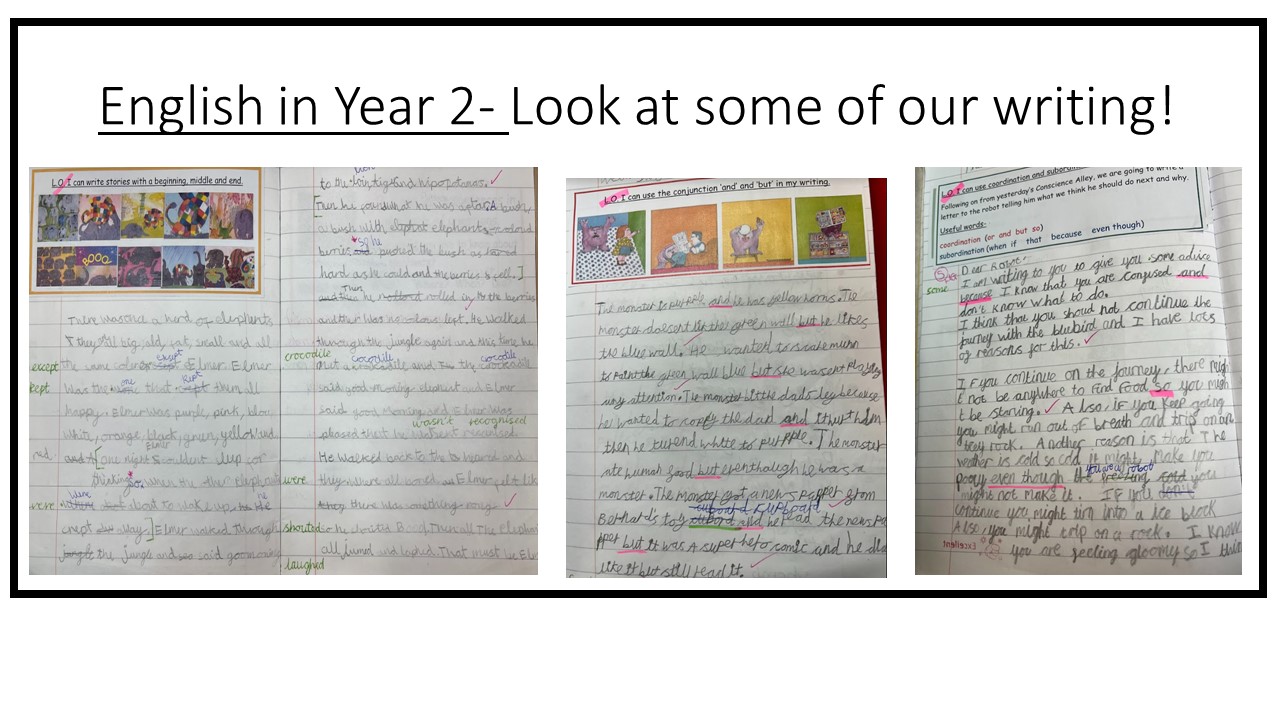 English in Year 2- Look at some of our writing!
L.O. I can write stories with a beginning, middle and end.
BOOO
There was once a herd of elephants
They all big, old, fat, small and all
except the same colour Elmer. Elmer
kept was the one that kept them all
happy. Elmer was purple, pink, blow
White, orange, black, green, yellow and
red. One night Elmer couldent sleep for
thinking so when the elephants
were were about to wake up. He
crept away. Elmer walked through
the jungle and said goodmorning
to the lion tigers and hipopotamas.
Then he found what he was after. A bush,
a bush with elephants colored
berries so he pushed the bush as
hard as he could and the berries fell.
Then he rolled in the berries
and ther was no colour left. He walked
through the jungle again and this time he
crocodile met a crocodile and the crocodile
said good morning elephant and Elmer
said good morning and Elmer was
wasn't recognised
pleased that he
He walked back to the herd and
were they where all Elmer felt lik
there was something rong
shouted he shouted Booo. Then all the elephan
all jumed and lophed. That must be Elm
laughed
L.O. I can use the conjunction 'and' and 'but' in my writing.
The monster is purpple, and he was yellow horns. The
monster doesent like the green wall but he likes
the blue wall. He wanted to mum
to paint the green wall blue but she wasent playing
any attention. The monster bit the dads leg because
he wanted to the dad and it hurt him
then he turend white to purpple. The monster
ate human food but eventhalugh he was a
monster. The monster got a news papper from
cupboard
Bernards toy and he read the news pa
pper but it was a super hero sonic and he did
like it but still read it.
L.O. I can use coordination and subord
Following on from yesterday's Conscience Alley, we are going to write a
letter to the robot telling him what we think he should do next and why.
Useful words-
coordination (or and but so)
subordination (when if that because even though)
Dear Robot,
some I am writing to you to give you some advice
because I know that you are confused and
don't know what to do.
I think that you shoud not continue the
jurney with the bluebird and I have lots
of reasons for this.
If you continue on the journey, there migh
t not be anywhere to find food so you migh
t be starving. Also if you keep going
you might run out of breath and trip on an
rock. Another reason is that The
wether is cold so cold it might make you
even though you are a robot you
might not make it. If you
continue you might turn into a ice block
Also, you might trip on a rock. I know
you are feeling gloomy so I thin